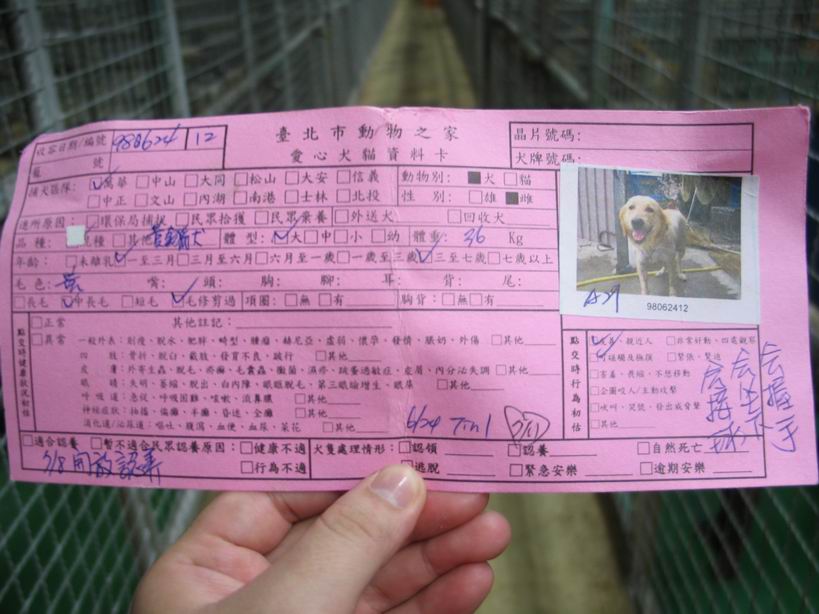 收容日期/編號 980624 12
臺北市動物之家
晶片號碼:
籠 號
愛心犬貓資料卡
犬牌號碼:
捕犬區隊: ☑萬華 □中山 □大同 □松山 □大安 □信義 動物別: ■犬 □貓
□中正 □文山 □內湖 □南港 □士林 □北投 性 別: □雄 ■雌
進所原因: □環保局捕捉 □民眾拾獲 □民眾棄養 □外送犬 □回收犬
品 種: 犯種 □其他 黃金獵犬 體 型: ☑大 □中 □小 □幼 體重: 36 Kg
年齡: □未離乳 □一至三月 □三月至六月 □六月至一歲 □一歲至三歲 ☑三至七歲 □七歲以上
毛色: 黃 嘴: 頭: 胸: 腳: 耳: 背: 尾:
□長毛 ☑中長毛 □短毛 ☑毛修剪過 項圈: □無 □有 胸背: □無 □有
A29
98062412
點交時健康狀況初估
□正常 其他註記:
□異常 一般外表: 削瘦、脫水、肥胖、畸型、腫瘤、赫尼亞、虛弱、懷孕、發情、脹奶、外傷 □其他
四 肢: 骨折、脫臼、截肢、發育不良、跛行 □其他
皮 膚: 外寄生蟲、脫毛、疥癬、毛囊蟲、黴菌、濕疹、疏養過敏症、皮屑、內分泌失調 □其他
眼 睛: 失明、萎縮、脫出、白內障、眼瞼脫毛、第三眼瞼增生、眼屎 □其他
呼吸道: 急促、呼吸困難、咳嗽、流鼻膿 □其他
神經症狀: 抽搐、偏癱、半癱、昏迷、全癱 □其他
消化道/泌尿道: 嘔吐、腹瀉、血便、血尿、菜花 □其他
6/24 7in1
點交時行為初估
親近人 □非常好動、四處觀察
可碰觸及檢撰 □緊張、緊迫
□害羞、畏縮、不想移動
□企圖咬人/主動攻擊
□吠叫、哭號、發出威脅聲
会握手
会坐下
会撿球
□適合認養 □暫不適合民眾認養原因: □健康不適 犬隻處理情形: □認領 □認養 □自然死亡
7/8開放認養 □行為不適 □逃脫 □緊急安樂 □逾期安樂